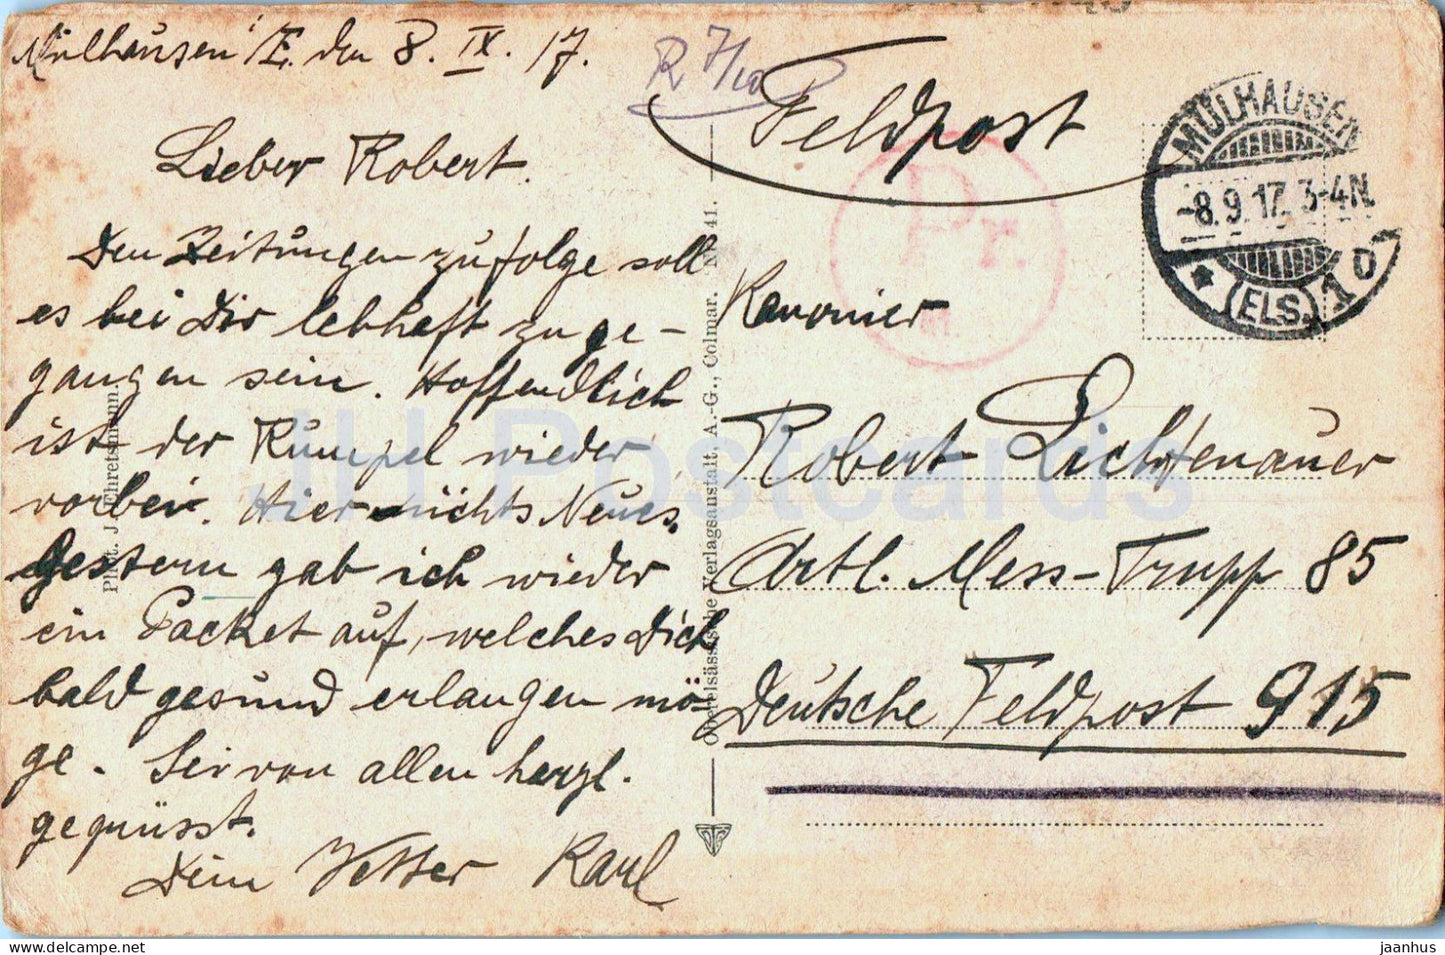 Mülhausen i/E. den 8. IX. 17.
Lieber Robert.
Den Zeitungen zufolge soll
es bei Dir lebhaft zuge-
gangen sein. Hoffendlich
ist der Rumpel wieder
vorbei. Hier nichts Neues.
Gestern gab ich wieder
ein Packet auf, welches Dich
bald gesund erlangen mö-
ge. Sei von allen herzl.
gegrüsst.
Dein Vetter Karl
R 7/10
Feldpost
Kanonier
Robert Lichtenauer
Artl. Mess-Trupp 85
Deutsche Feldpost 915
MÜLHAUSEN
-8.9.17. 3-4N.
* (ELS.) 1 o
Pr.
Phot. J. Chretsmann.
Oberelsässische Verlagsanstalt, A.-G., Colmar. Nr. 41.
JH Postcards
jaanhus